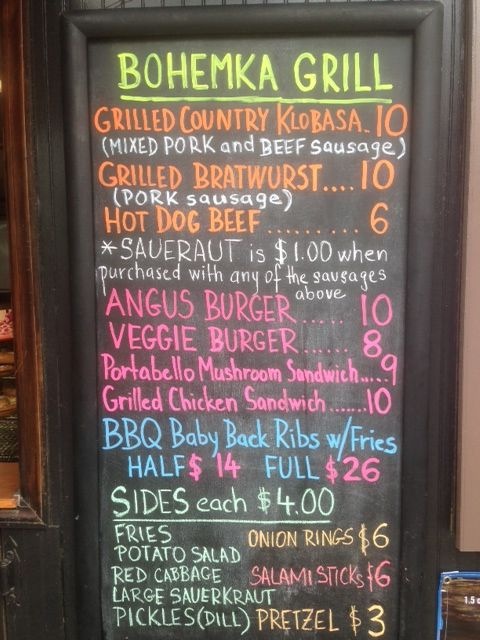 BOHEMKA GRILL
GRILLED COUNTRY KLOBASA. 10
(MIXED PORK and BEEF sausage)
GRILLED BRATWURST.... 10
(PORK sausage)
HOT DOG BEEF .......... 6
*SAUERAUT is $1.00 when
purchased with any of the sausages
above
ANGUS BURGER ..... 10
VEGGIE BURGER ...... 8
Portabello Mushroom Sandwich..... 9
Grilled Chicken Sandwich.......10
BBQ Baby Back Ribs w/Fries
HALF $ 14 FULL $26
SIDES each $4.00
FRIES ONION RINGS $6
POTATO SALAD
RED CABBAGE SALAMI STICKS $6
LARGE SAUERKRAUT
PICKLES (DILL) PRETZEL $3